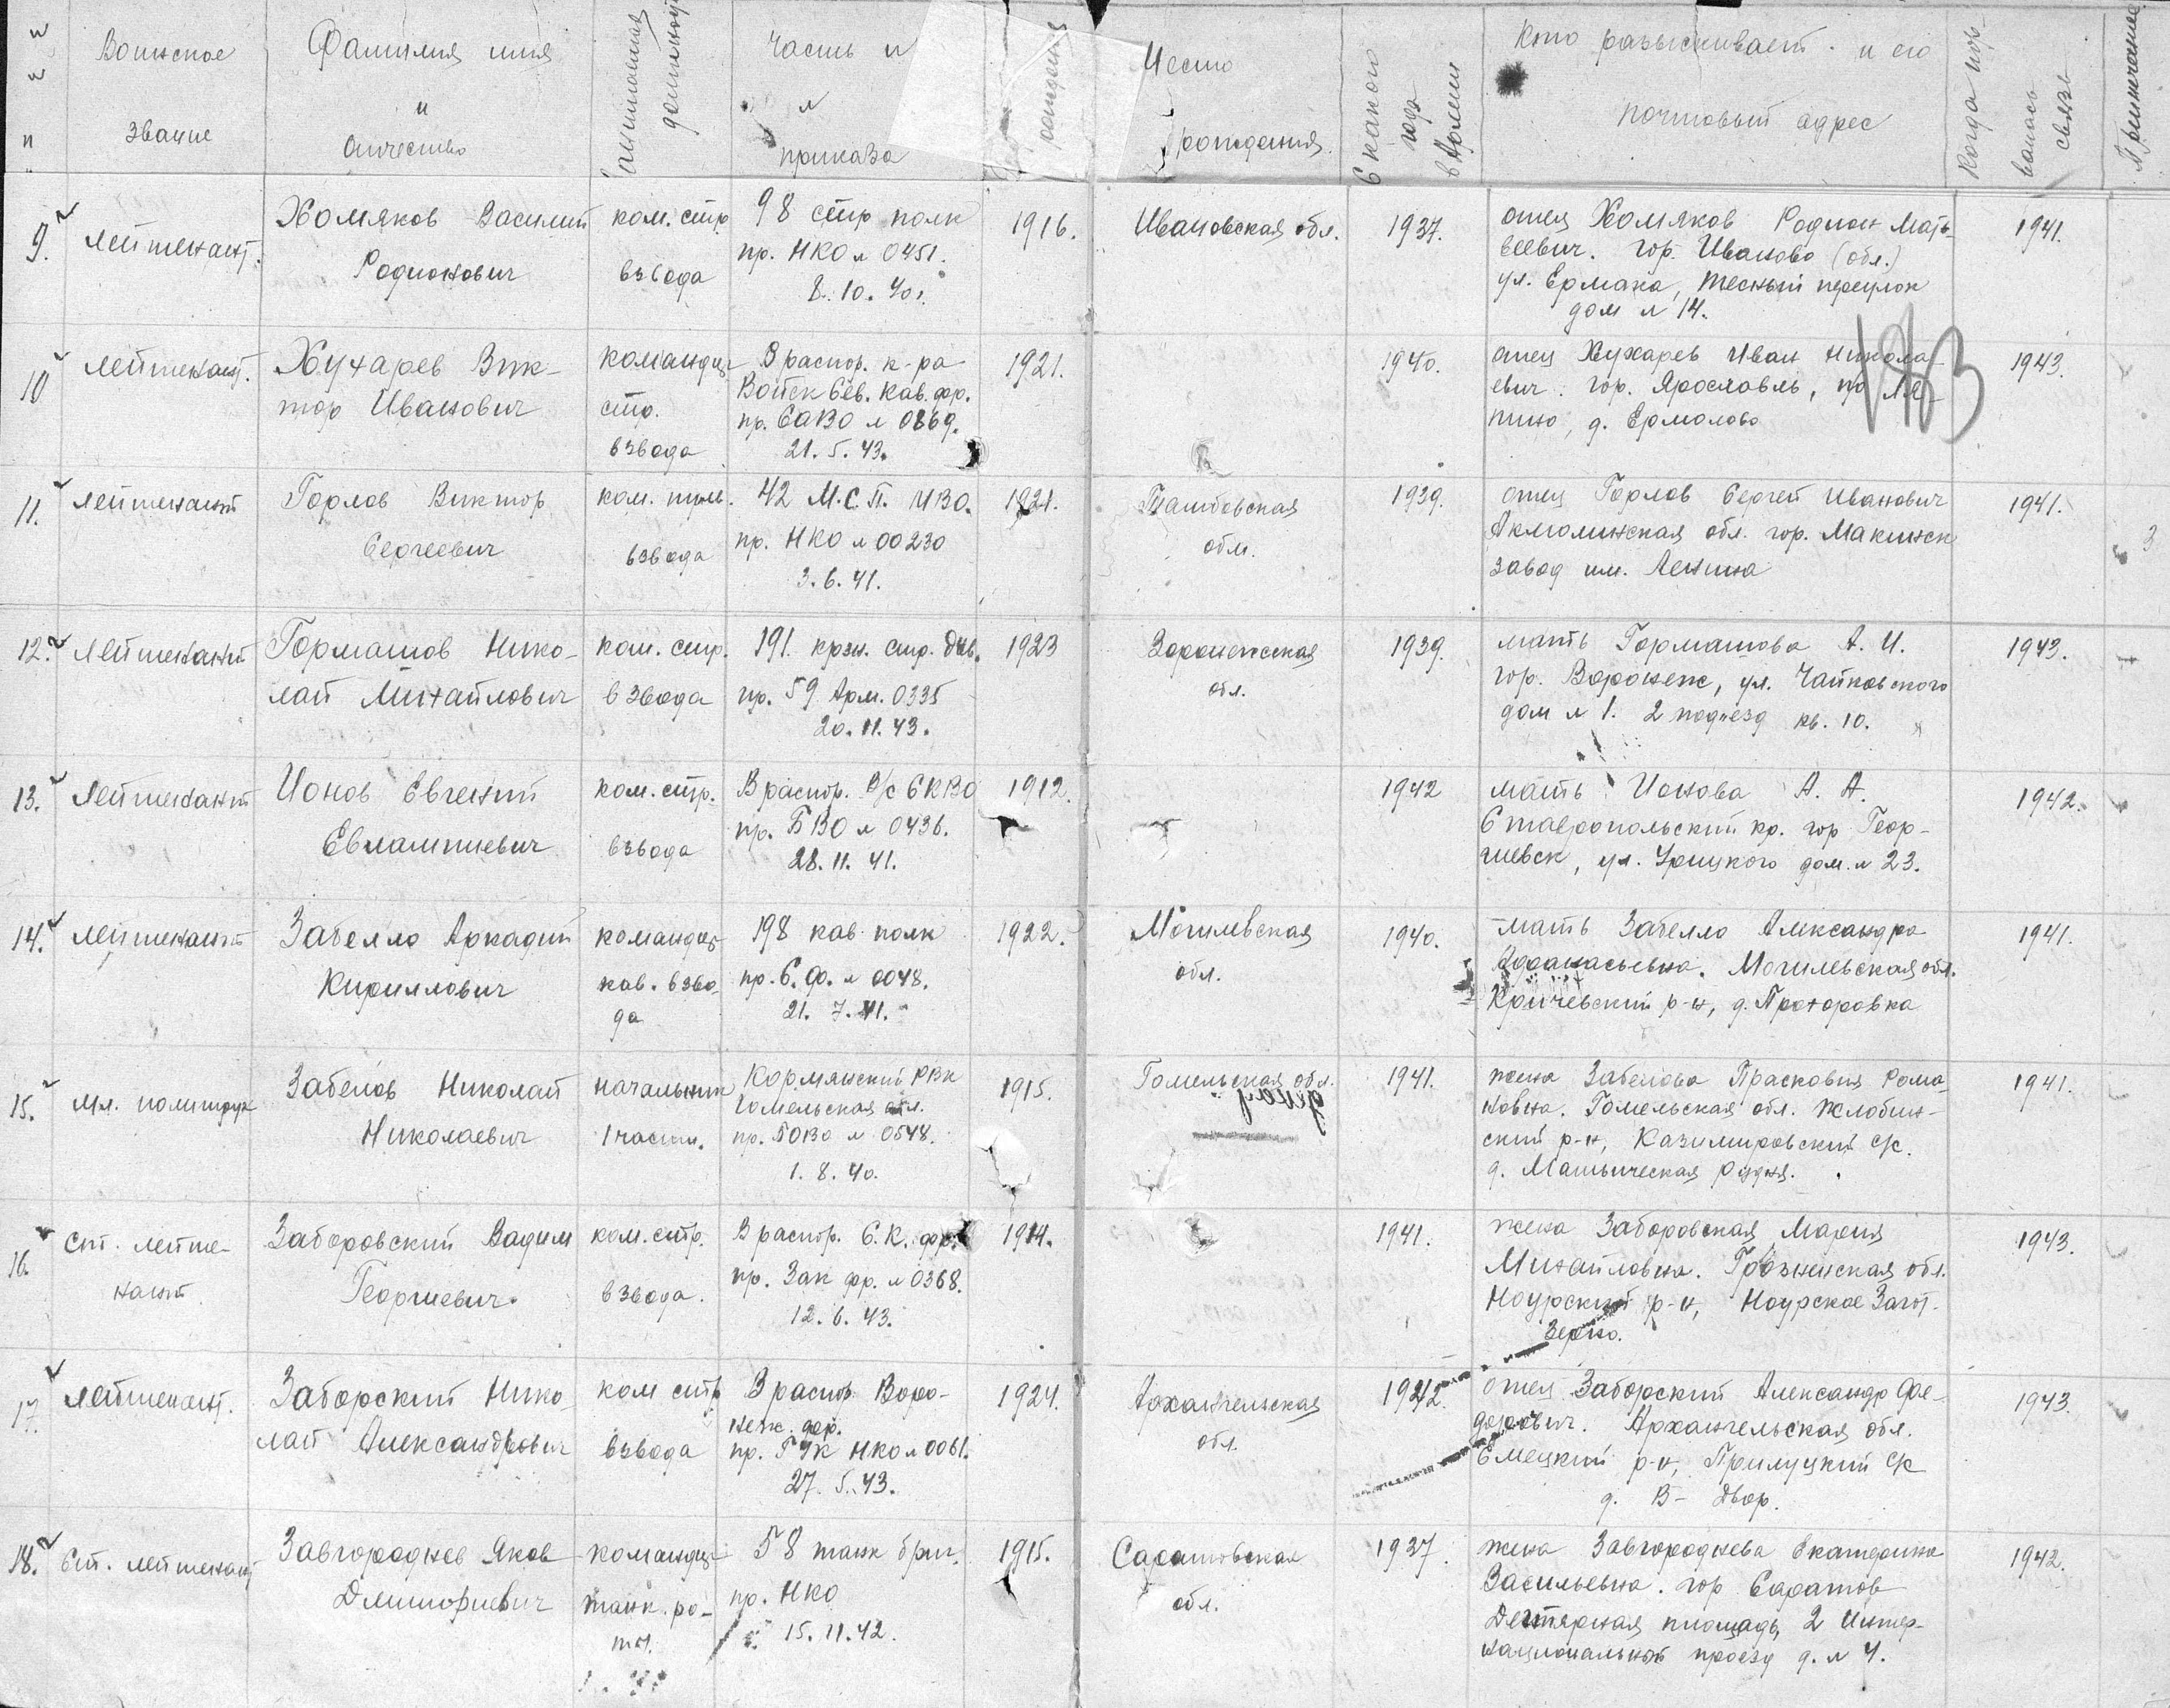 Воинское звание
Фамилия имя и отчество
занимаемая должность
Часть и № приказа
рождения
Место рождения
С какого года в Армии
Кто разыскивает и его почтовый адрес
Когда пор-
валась связь
Примечание
9. лейтенант.
Хомяков Василий
Родионович
ком. стр.
взвода
98 стр полк
пр. НКО № 0451.
8. 10. 40г.
1916.
Ивановская обл.
1937.
отец Хомяков Родион Мать-
веевич. гор. Иваново (обл.)
ул. Ермака, Тесный переулок
дом № 14.
1941.
10 лейтенант.
Хухарев Вик-
тор Иванович
командир
стр.
взвода
В распор. к-ра
Войск Сев. Кав. фр.
пр. САВО № 0869.
21. 5. 43.
1921.
1940.
отец Хухарев Иван Никола
евич. гор. Ярославль, по Ля-
пино, д. Ермолово
1943
1943.
11. лейтенант
Горлов Виктор
Сергеевич
ком. пул.
взвода
42 М.С.П. МВО.
пр. НКО № 00230
3. 6. 41.
1921.
Тамбовская
обл.
1939.
отец Горлов Сергей Иванович
Акмолинская обл. гор. Макинск
завод им. Ленина
1941.
3
12. лейтенант
Гормашов Нико-
лай Михайлович
ком. стр.
взвода
191 крзн. стр. див.
пр. 59 Арм. 0335
20. 11. 43.
1923
Воронежская
обл.
1939.
мать Гормашова А. И.
гор. Воронеж, ул. Чайковского
дом № 1. 2 подъезд кв. 10.
1943.
13. лейтенант
Ионов Евгений
Евлампиевич
ком. стр.
взвода
В распор. В/с СКВО
пр. БВО № 0436.
28. 11. 41.
1912.
1942
мать Ионова А. А.
Ставропольский кр. гор Геор-
гиевск, ул. Урицкого дом. № 23.
1942.
14. лейтенант
Забелло Аркадий
Кириллович
командир
кав. взво-
да
198 кав. полк
пр. С. Ф. № 0048.
21. 7. 41.
1922.
Могилевская
обл.
1940.
мать Забелло Александра
Афанасьевна. Могилевская обл.
Кричевский р-н, д. Прохоровка
1941.
15. Мл. политрук
Забелов Николай
Николаевич
начальник
1 части.
Кормянский РВК
Гомельская обл.
пр. БОВО № 0548.
1. 8. 40.
1915.
Гомельская обл.
1941.
жена Забелова Прасковия Рома-
новна. Гомельская обл. Жлобин-
ский р-н, Казимировский с/с.
д. Рудня.
1941.
16. Ст. лейте-
нант
Заборовский Вадим
Георгиевич.
ком. стр.
взвода.
В распор. С. К. фр.
пр. Зак фр. № 0368.
12. 6. 43.
1914.
1941.
жена Заборовская Мария
Михайловна. Грозненская обл.
Наурский р-н, Наурское Загот-
зерно.
1943.
17. лейтенант.
Заборский Нико-
лай Александрович
ком стр.
взвода
В распор. Воро-
неж. фр.
пр. ГУК НКО № 0061.
27. 5. 43.
1924.
Архангельская
обл.
1942
отец Заборский Александр Фе-
дорович. Архангельская обл.
Емецкий р-н, Прилуцкий с/с
д. В- Двор.
1943.
18. Ст. лейтенант
Завгороднев Яков
Дмитриевич
командир
танк. ро-
ты.
58 танк бриг.
пр. НКО
15. 11. 42.
1915.
Саратовская
обл.
1937.
жена Завгороднева Екатерина
Васильевна. гор Саратов
Дегтярная площадь, 2 Интер-
национальный проезд д. № 4.
1942.